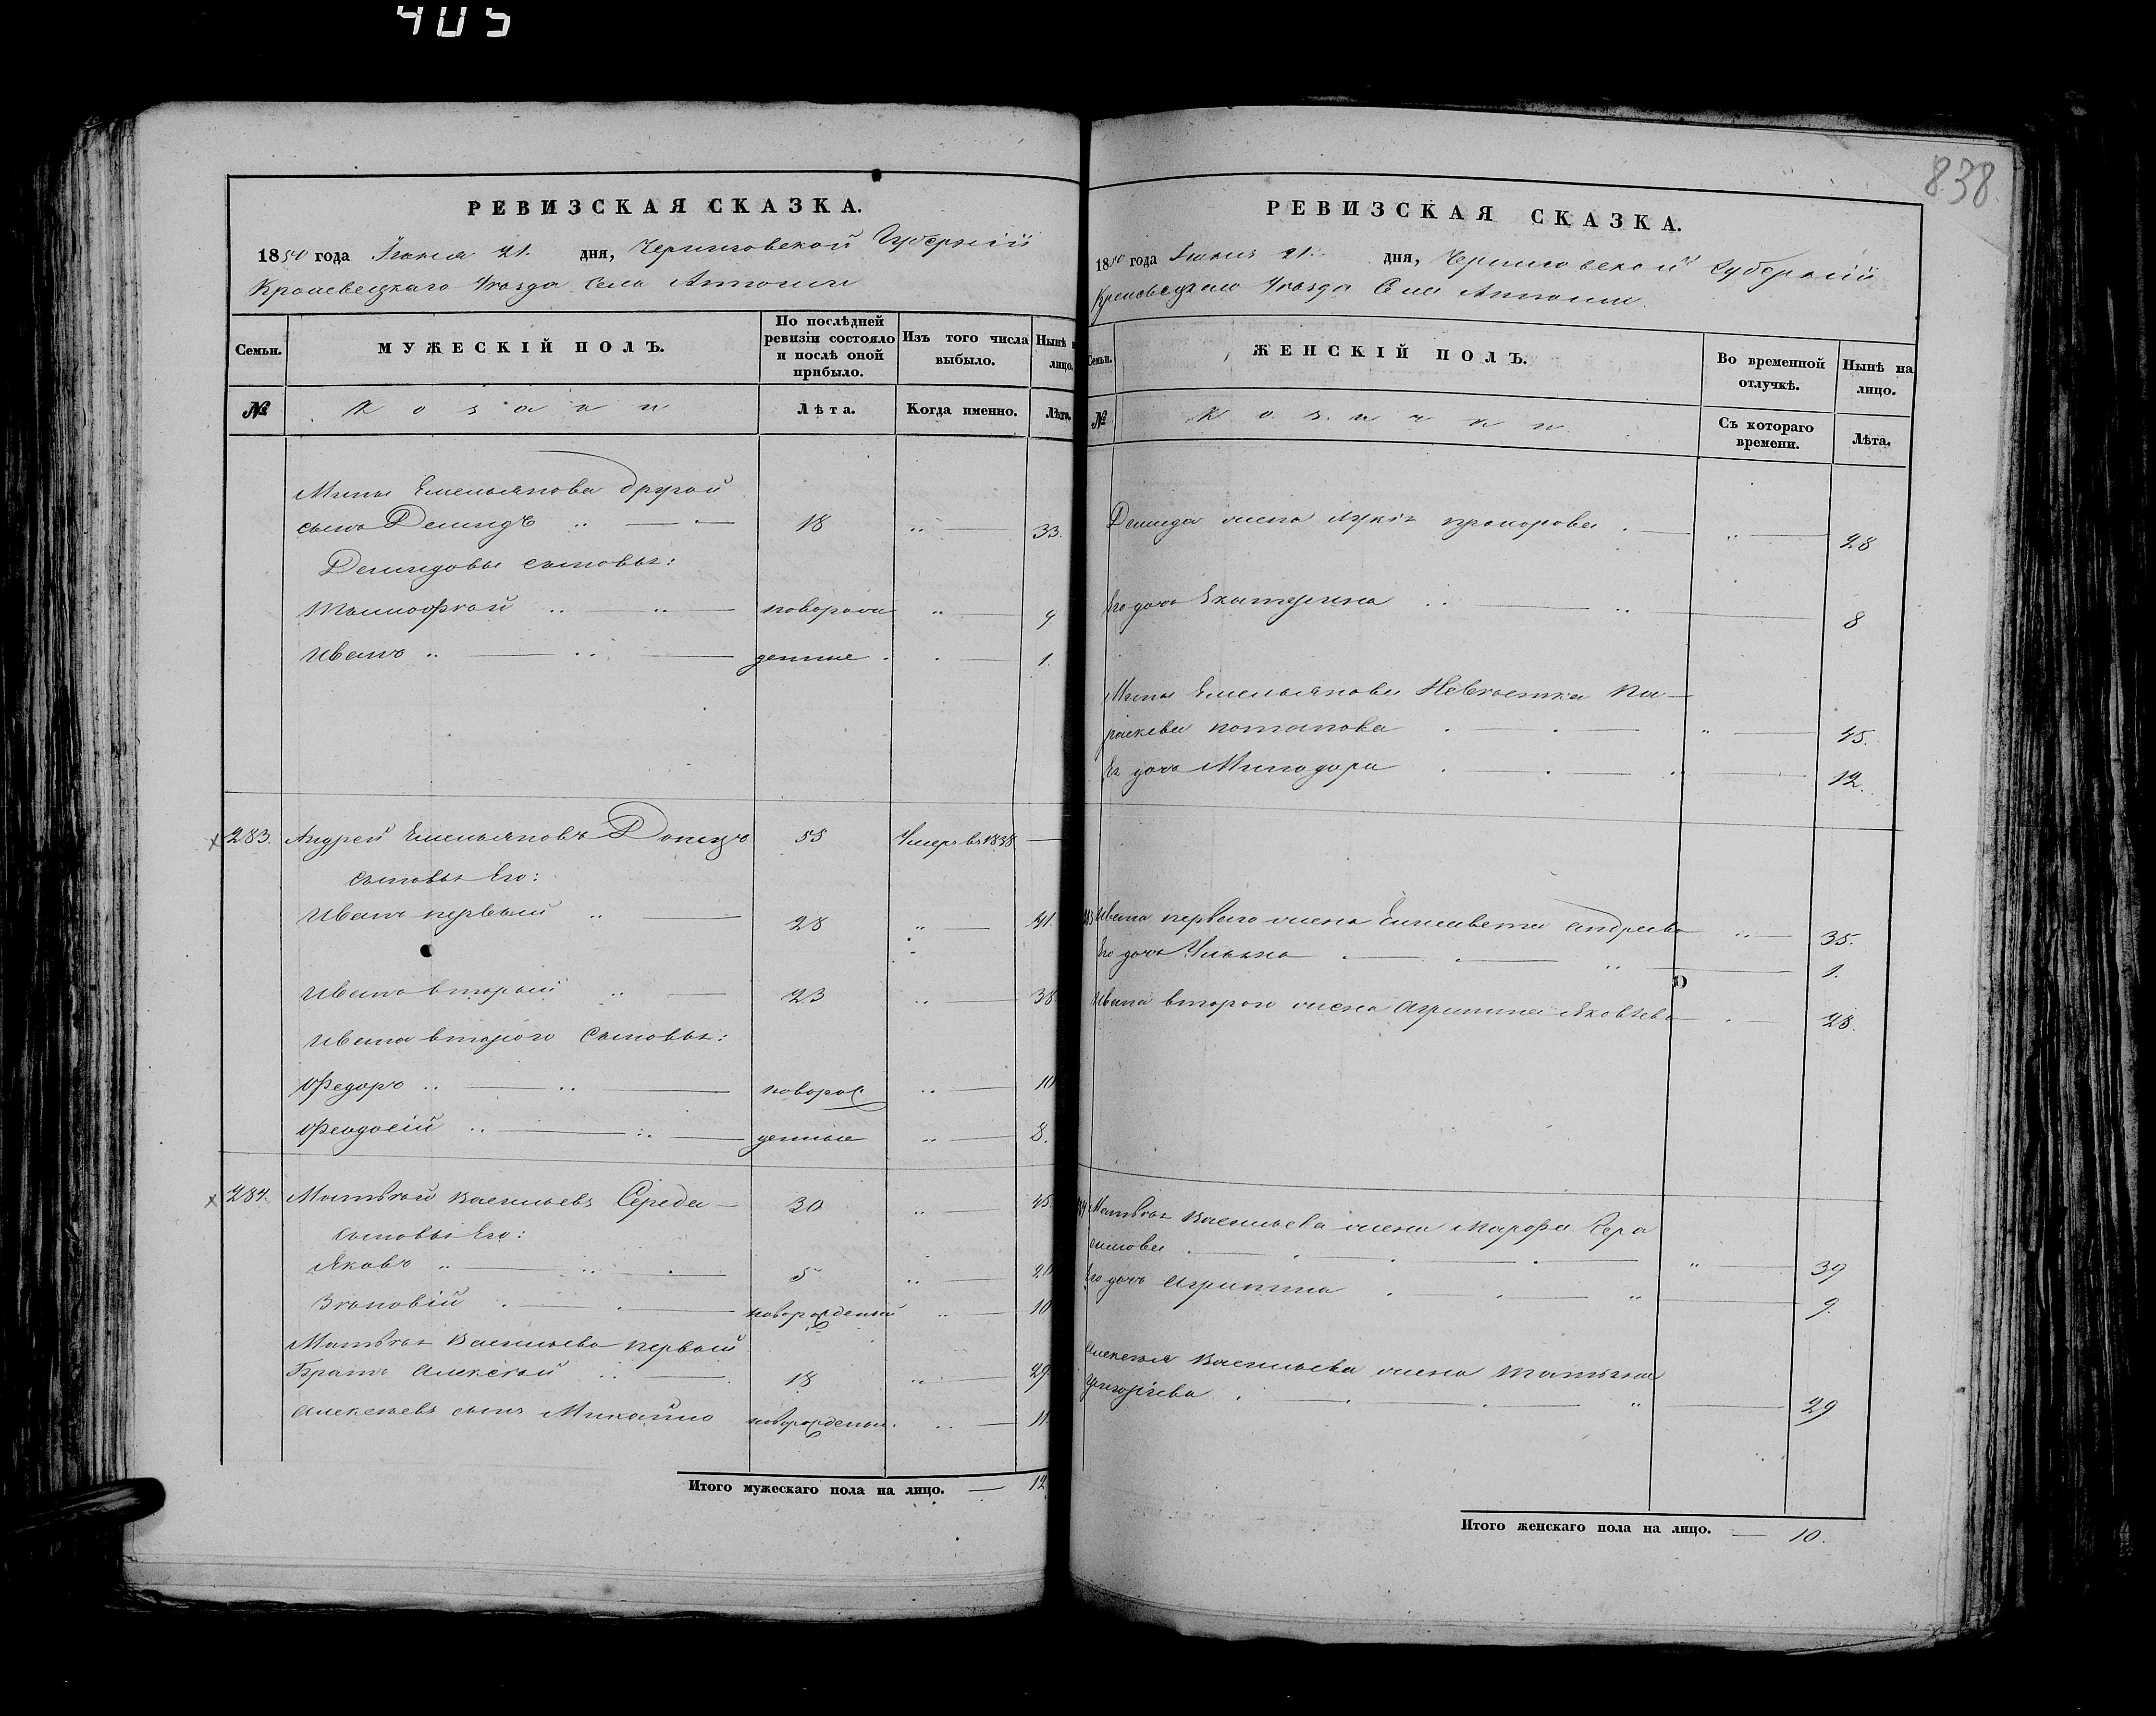 405
838
РЕВИЗСКАЯ СКАЗКА.
1850 года Іюня 21. дня, Черниговской Губерніи
Кролевецкаго Уѣзда Села
Семьи.
МУЖЕСКІЙ ПОЛЪ.
По послѣдней ревизіи состояло и послѣ оной прибыло.
Изъ того числа выбыло.
Нынѣ н лицо.
№
Козаки
Лѣта.
Когда именно.
Лѣта.
Мины Емельянова другой
сынъ Демидъ 18 33.
Демидовы сыновья:
Тимофѣй новорож 9
Иванъ денные 1.
283. Андрей Емельяновъ Донецъ 55 Умеръ въ 1838
сыновья Его:
Иванъ первый 28 41.
Иванъ вторый 23 38
Ивана второго сыновья:
Федоръ новорож 10
Феодосій денные 8.
284. Матвѣй Васильевъ Середа 30 45.
сыновья Его:
Яковъ 5 20
Зѣновій новорожденый 10
Матвѣя Васильева первый
Братъ Алексѣй 18 29.
Алексѣевъ сынъ Михайло новорожденый. 11
Итого мужескаго пола на лицо. 12
РЕВИЗСКАЯ СКАЗКА.
1850 года Іюня 21. дня, Черниговской Губерніи
Кролевецкаго Уѣзда Села
Семьи.
ЖЕНСКІЙ ПОЛЪ.
Во временной отлучкѣ.
Нынѣ на лицо.
№
Козачки
Съ котораго времени.
Лѣта.
Демида жена Лукія прохорова 28
Его дочь Екатерина 8
Мины Емельянова Невѣстка Па-
раскева потапова 45.
Ея дочь Минодора 12.
283 Ивана первого жена Елисавета андреева 35.
Его дочь Ульяна 1.
Ивана второго жена Агрипина Яковлева 28.
284 Матвѣя Васильева жена Марфа Гера
симова 39
Его дочь Агрипина 9.
Алексѣя Васильева жена Татьяна
григоріева 29
Итого женскаго пола на лицо. 10.